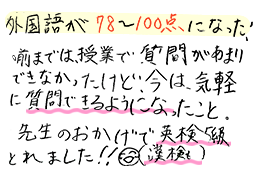 外国語が78~100点になった!
前までは、授業で質問があまり
できなかったけど、今は、気軽
に質問できるようになったこと。
先生のおかげで英検4級
とれました!!(漢検も)